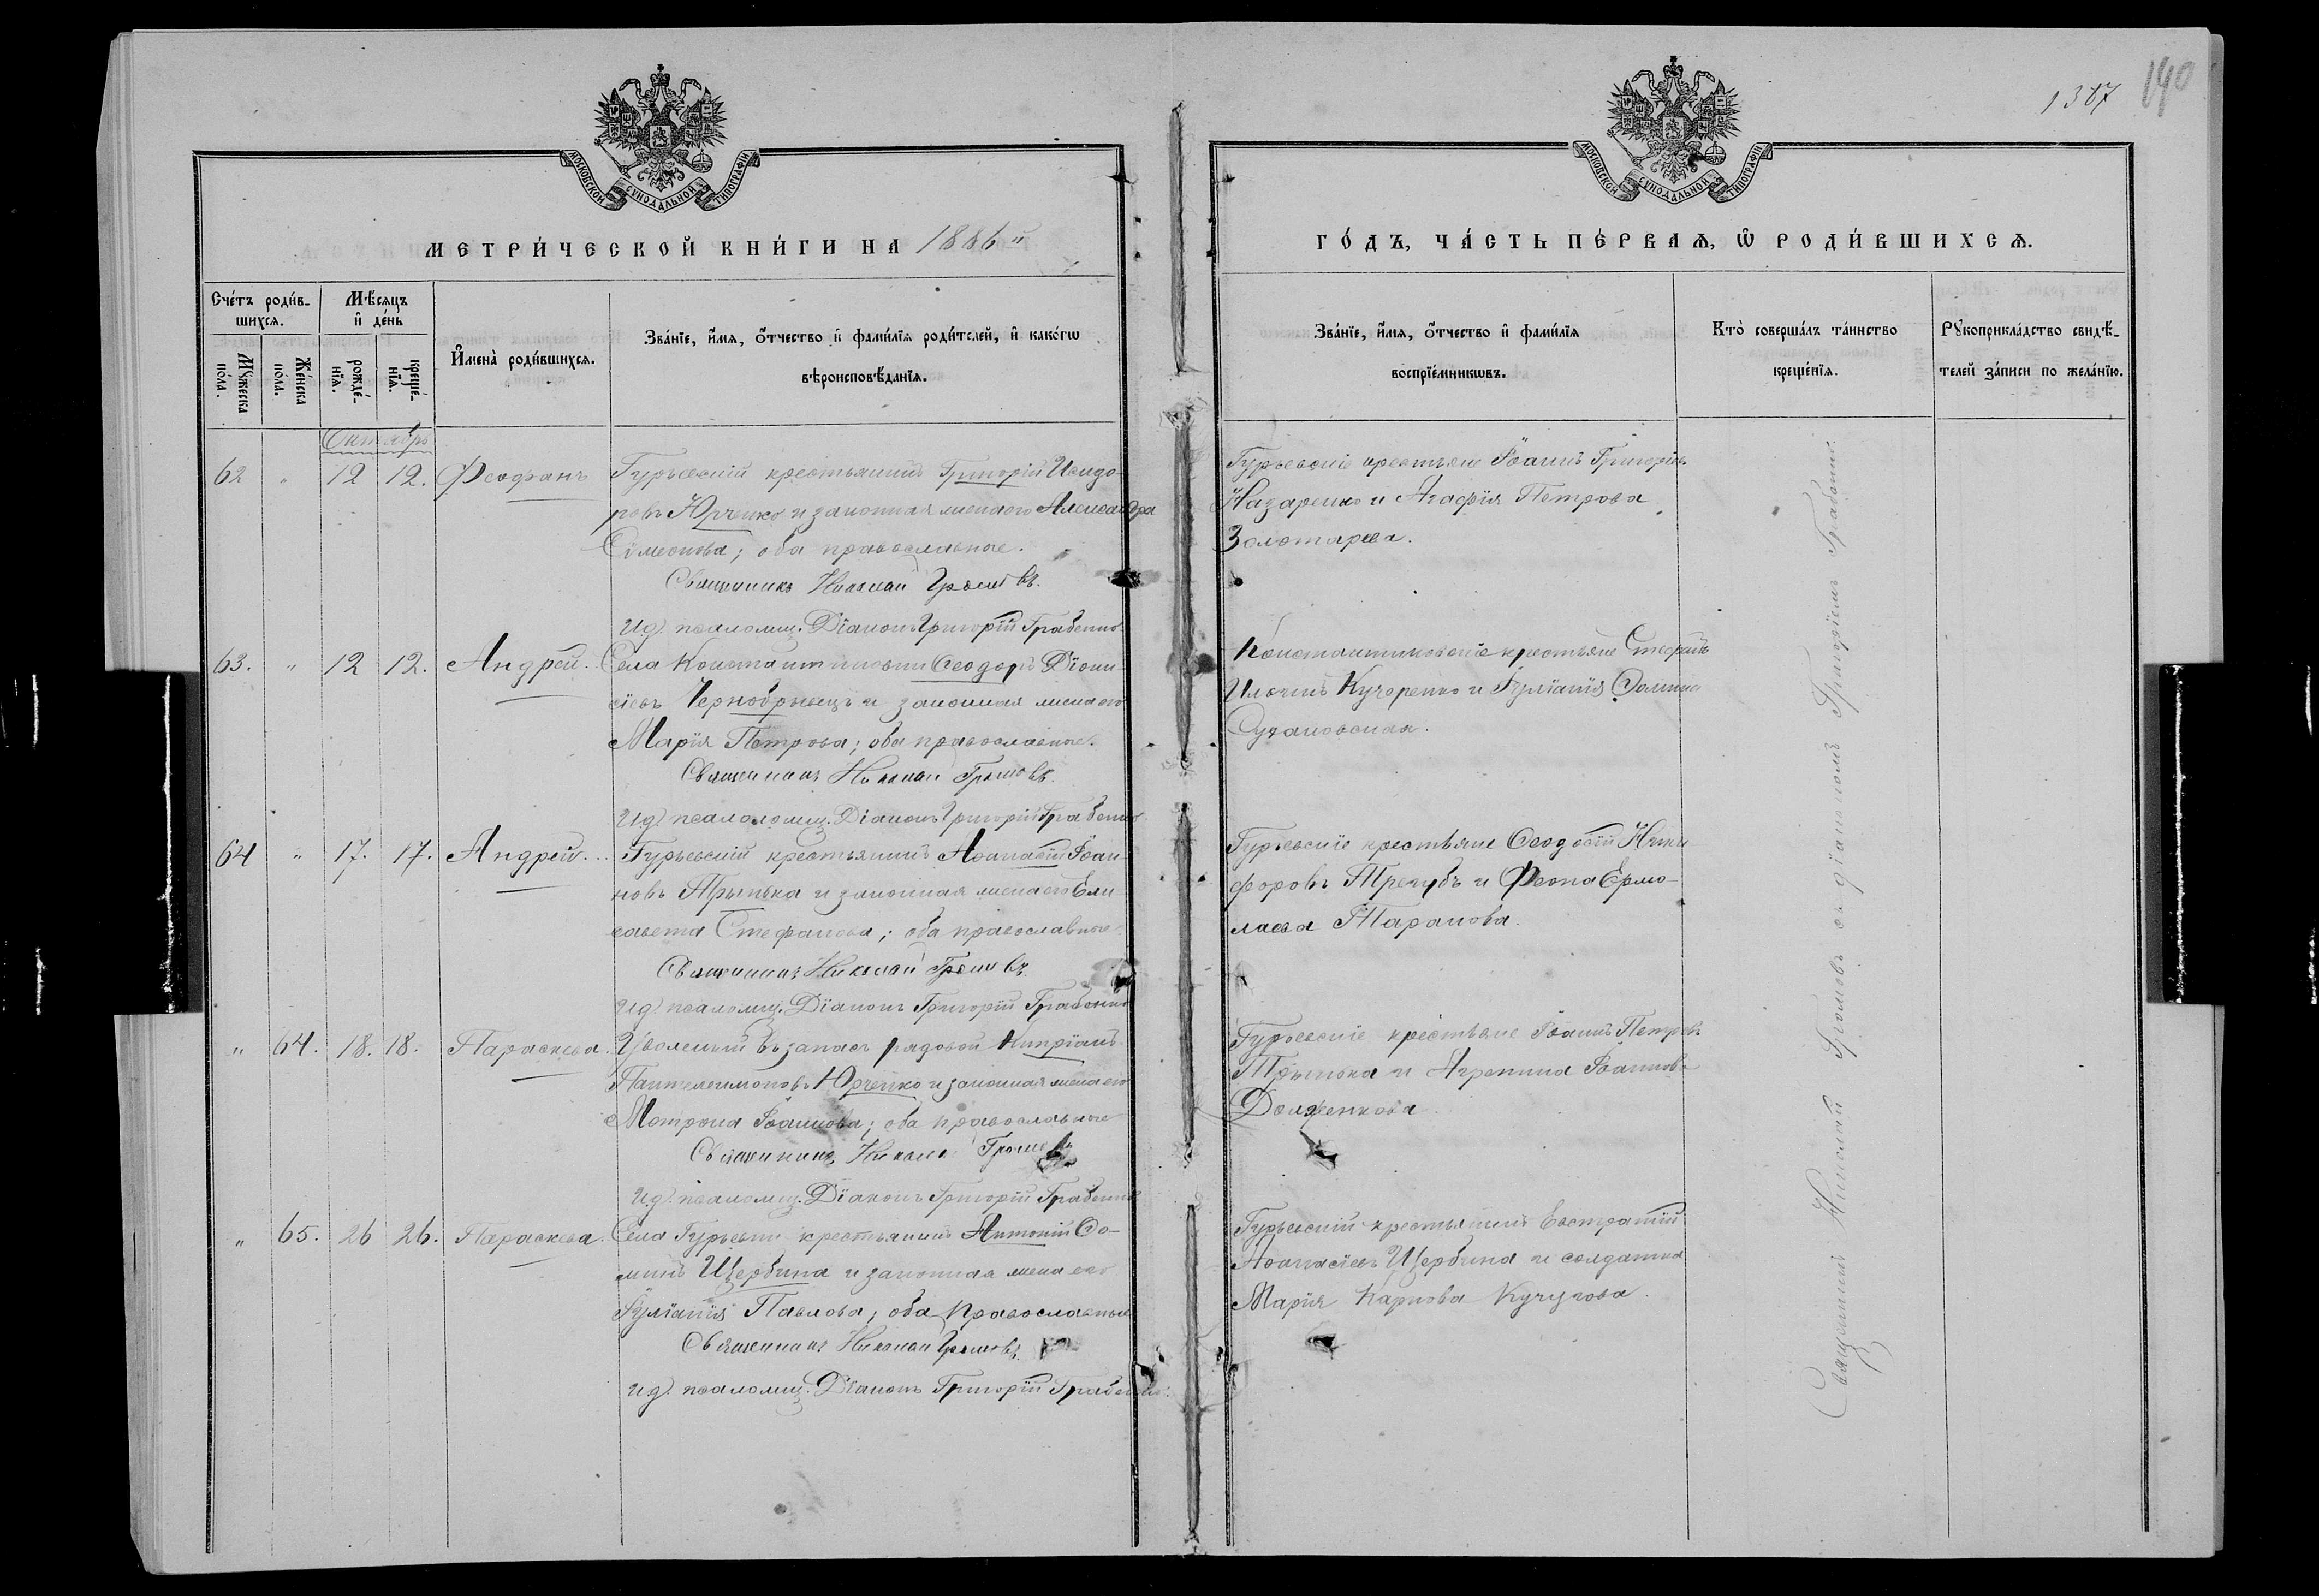 1387
190
МОСКОВСКОЙ СѴНОДАЛЬНОЙ ТИПОГРАФІИ
МОСКОВСКОЙ СѴНОДАЛЬНОЙ ТИПОГРАФІИ
МЕТРИ́ЧЕСКОЙ КНИ́ГИ НА 1886й
ГО́ДЪ, ЧА́СТЬ ПЕ́РВАѦ, Ѽ РОДИ́ВШИХСѦ.
Сче́тъ роди́в-
шихсѧ.
Мꙋ́жеска по́ла.
Же́нска по́ла.
Мѣ́сѧцъ и҆ де́нь
рожде́-нїѧ.
креще́-нїѧ.
И҆мена̀ роди́вшихсѧ.
Зва́нїе, и҆́мѧ, ѻ҆́тчество и҆ фами́лїѧ роди́телей, и҆ како́гѡ
вѣроисповѣ́данїѧ.
Зва́нїе, и҆́мѧ, ѻ҆́тчество и҆ фами́лїѧ
воспрїе́мникѡвъ.
Кто̀ соверша́лъ та́инство
креще́нїѧ.
Рꙋкоприкла́дство свидѣ́-
телей за́писи по жела́нїю.
Октябрь
62 " 12 12. Феофанъ
Гурьевскій крестьянинъ Григорій Исидо-
ровъ Юрченко и законная жена его Александра
Сѵмеонова; оба православные.
Священникъ Николай Громовъ.
И.д. псаломщ. Діаконъ Григорій Грабенко
Гурьевскіе крестьяне Іоаннъ Григорьевъ
Назаренко и Агафія Петрова
Золотарева.
63. " 12 12. Андрей.
Села Константиновки Ѳеодоръ Діони-
сіевъ Чернобрывецъ и законная жена его
Марія Петрова; оба православные.
Священникъ Николай Громовъ.
И.д. псаломщ. Діаконъ Григорій Грабенко
Константиновскіе крестьяне Стефанъ
Ильинъ Кучеренко и Іуліанія Ѳомина
64 " 17. 17. Андрей.
Гурьевскій крестьянинъ Аѳанасій Іоан-
новъ Трынька и законная жена его Ели-
савета Стефанова; оба православные
Священникъ Николай Громовъ
И.д. псаломщ. Діаконъ Григорій Грабенко
Гурьевскіе крестьяне Ѳеодосій Ники-
форовъ Трегубъ и Феона Ермо-
лаева Таранова.
" 64. 18. 18. Параскева.
Уволеный въ запасъ рядовой Кипріанъ
Пантелеимоновъ Юрченко и законная жена его
Матрона Іоаннова; оба православные
Священникъ Николай Громовъ
И.д. псаломщ. Діаконъ Григорій Грабенко
Гурьевскіе крестьяне Іоаннъ Петровъ
Трынька и Агрепина Іоаннова
Долженкова
" 65. 26 26. Параскева.
Села Гурьевки крестьянинъ Антоній Ѳо-
минъ Щербина и законная жена его
Іуліанія Павлова; оба Православные
Священникъ Николай Громовъ.
И.д. псаломщ. Діаконъ Григорій Грабенко.
Гурьевскій крестьянинъ Евстратій
Аѳанасіевъ Щербина и солдатка
Марія Карпова Кучугова.
Священникъ Николай Громовъ съ діакономъ Григоріемъ Грабенко.